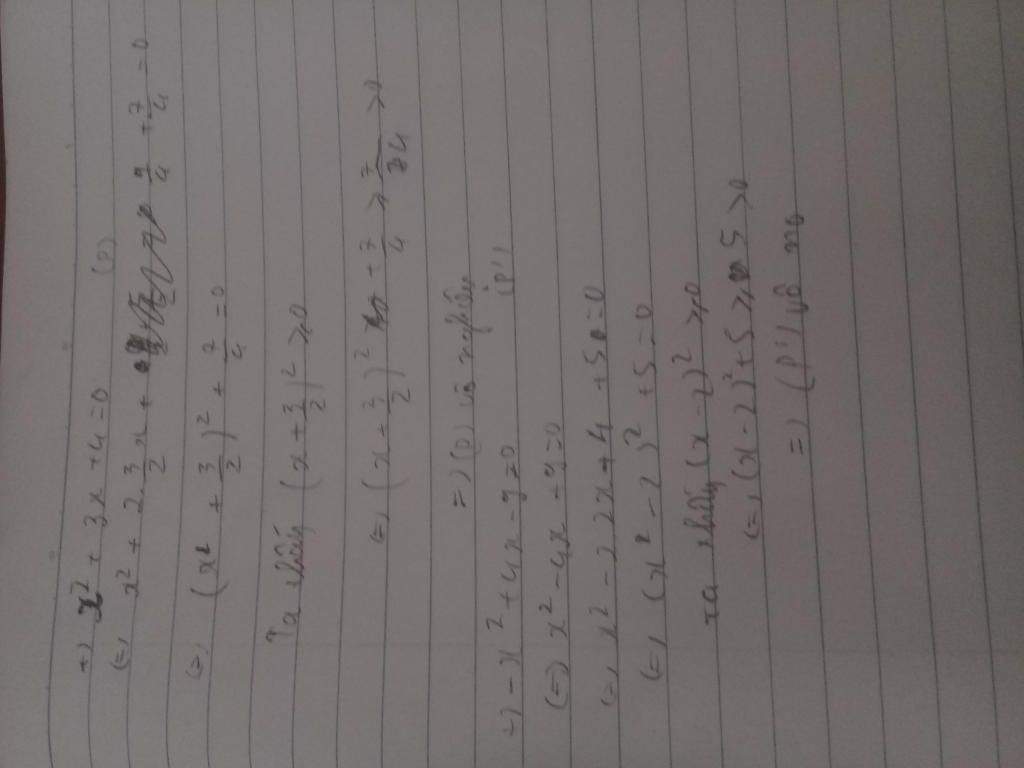 +) x² + 3x + 4 = 0 (P)
(=) x² + 2. 3/2 x + 9/4 + 7/4 = 0
(=) (x² + 3/2)² + 7/4 = 0
Ta thấy (x + 3/2)² ≥ 0
(=) (x + 3/2)² + 7/4 ≥ 7/4 > 0
=> (P) vô nghiệm
+) -x² + 4x - 9 = 0 (P')
(=) x² - 4x + 9 = 0
(=) x² - 2 2x + 4 + 5 = 0
(=) (x² - 2)² + 5 = 0
Ta thấy (x - 2)² ≥ 0
(=) (x - 2)² + 5 ≥ 5 > 0
=> (P') vô no